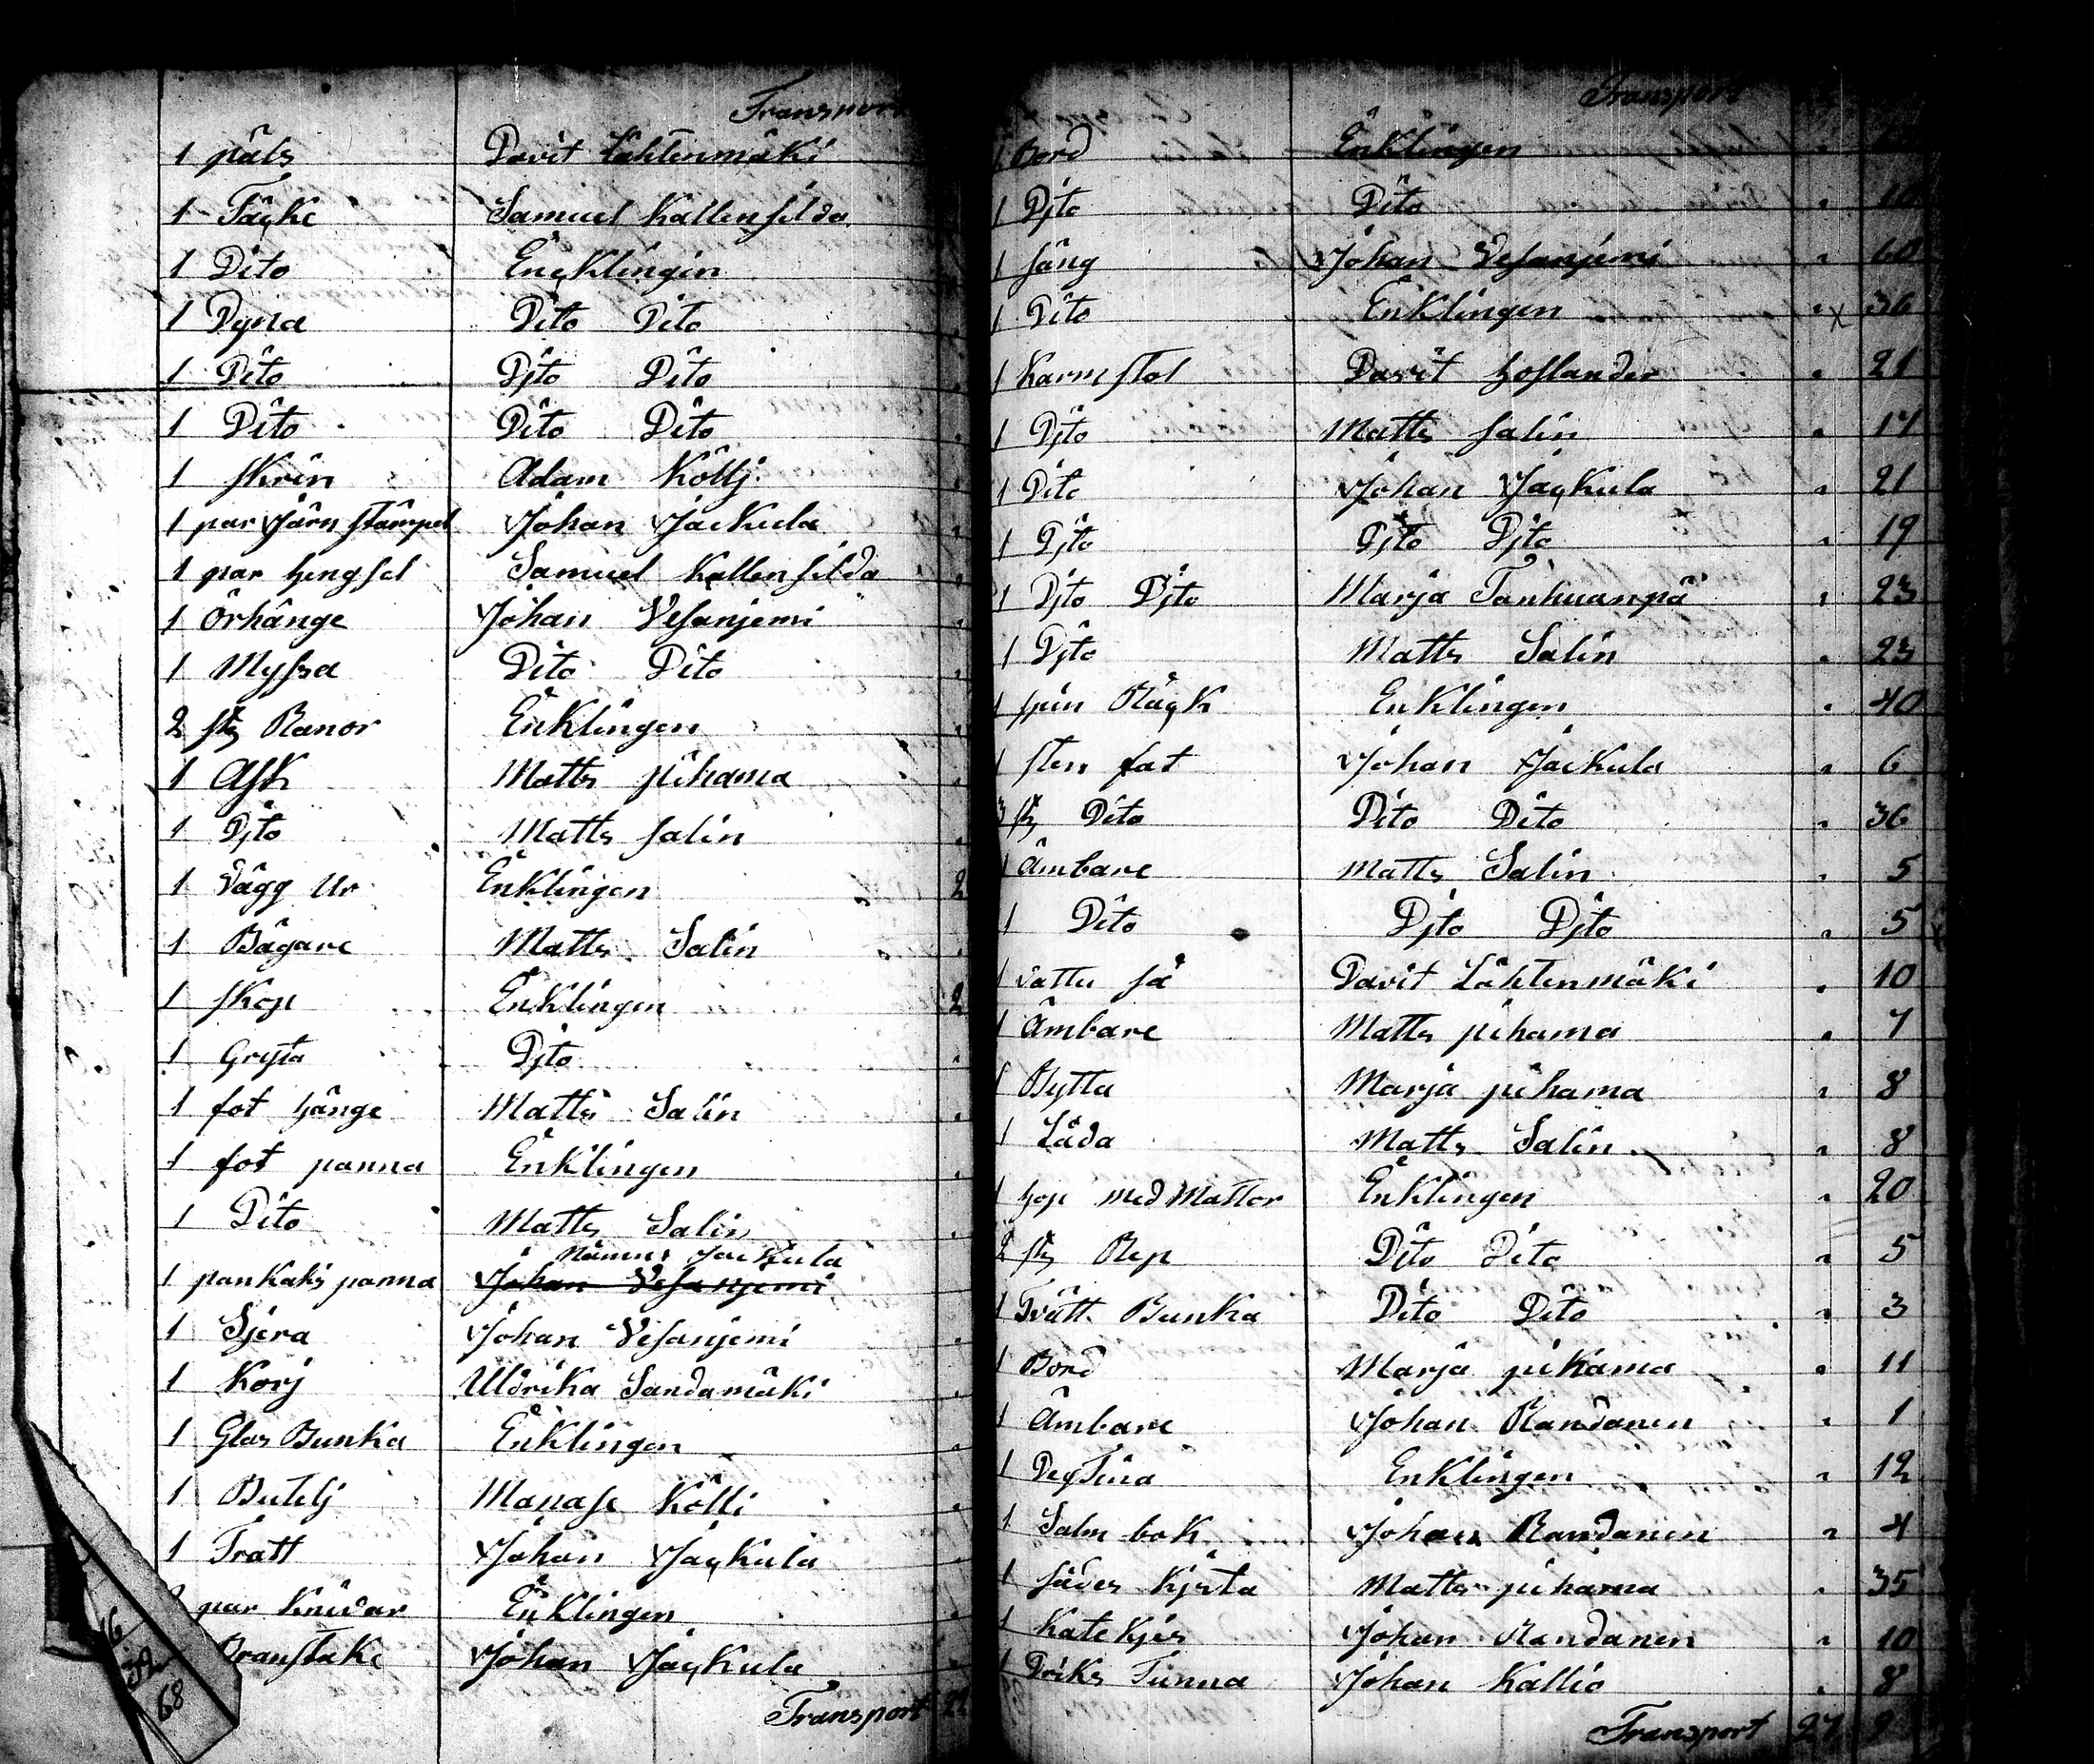 Transport
1 päls Davit Lähtenmäki
1 Täcke Samuel Kallenfilda
1 Dito Encklingin
1 Dyna Dito Dito
1 Dito Djto Dito
1 Dito Dito Dito
1 skrin Adam Kölli
1 par Järn stämpel Johan Jackula
1 par hengsel Samuel Kallenfilda
1 Örhänge Johan Vesanjemi
1 Myssa Dito Dito
2 st Ranor Enklingen
1 Ask Matts pihama
1 Djto Matts salin
1 Vägg Ur Enklingen 2
1 Bägare Matts Salin
1 skop Enklingen 2
1 Gryta Djto
1 fot hänge Matts Salin
1 fot panna Enklingen
1 Dito Matts Salin
Jackula
1 pankaks panna Johan Vesanjemi
1 Sjera Johan Vesanjemi
1 Korj Uldrika Sandamäki
1 Glas Bunka Enklingen
1 Butelj Manase Kölli
1 Tratt Johan Jackula
par knivar Enklingen
Branstake Johan Jackula
Transport
16
32
68
Transport
1 Bord Enklingen
1 Djto Dito 10
1 säng Johan Vesanjemi 60
1 Dito Enklingen x 36
1 Karmstol Davit hoslander 21
1 Djto Matts salin 17
1 Dito Johan Jackula 21
1 Djto Djto Djto 19
1 Djto Djto Marja Tanhuanpä 23
1 Djto Matts Salin 23
1 spin Råck Enklingen 40
1 sten fat Johan Jackula 6
3 st Dito Dito Dito 36
1 Ämbare Matts Salin 5
1 Dito Djto Djto 5
1 vattu så Davit Lähtenmäki 10
1 Ämbare Matts pihama 7
1 Bytta Marja pihama 8
1 Låda Matts Salin 8
1 hop med Mattor Enklingen 20
2 st Rep Dito Dito 5
1 Tvätt Bunka Dito Dito 3
1 Bord Marja pihama 11
1 Ämbare Johan Randanen 1
1 Degtina Enklingen 12
1 Salm bok Johan Randanen 4
1 säder Kjsta Matts pihama 35
1 Katekjes Johan Randanen 10
1 Driks Tunna Johan Kallio 8
Transport 27 9